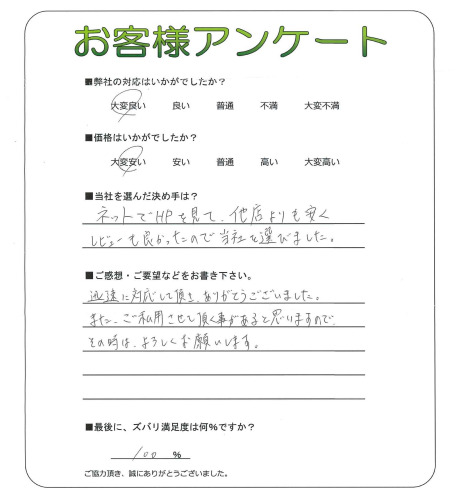 お客様アンケート
■弊社の対応はいかがでしたか？
大変良い 良い 普通 不満 大変不満
■価格はいかがでしたか？
大変安い 安い 普通 高い 大変高い
■当社を選んだ決め手は？
ネットでHPを見て、他店よりも安く
レビューも良かったので当社を選びました。
■ご感想・ご要望などをお書き下さい。
迅速に対応して頂き、ありがとうございました。
また、ご利用させて頂く事があると思いますので、
その時は、よろしくお願いします。
■最後に、ズバリ満足度は何%ですか？
100 %
ご協力頂き、誠にありがとうございました。